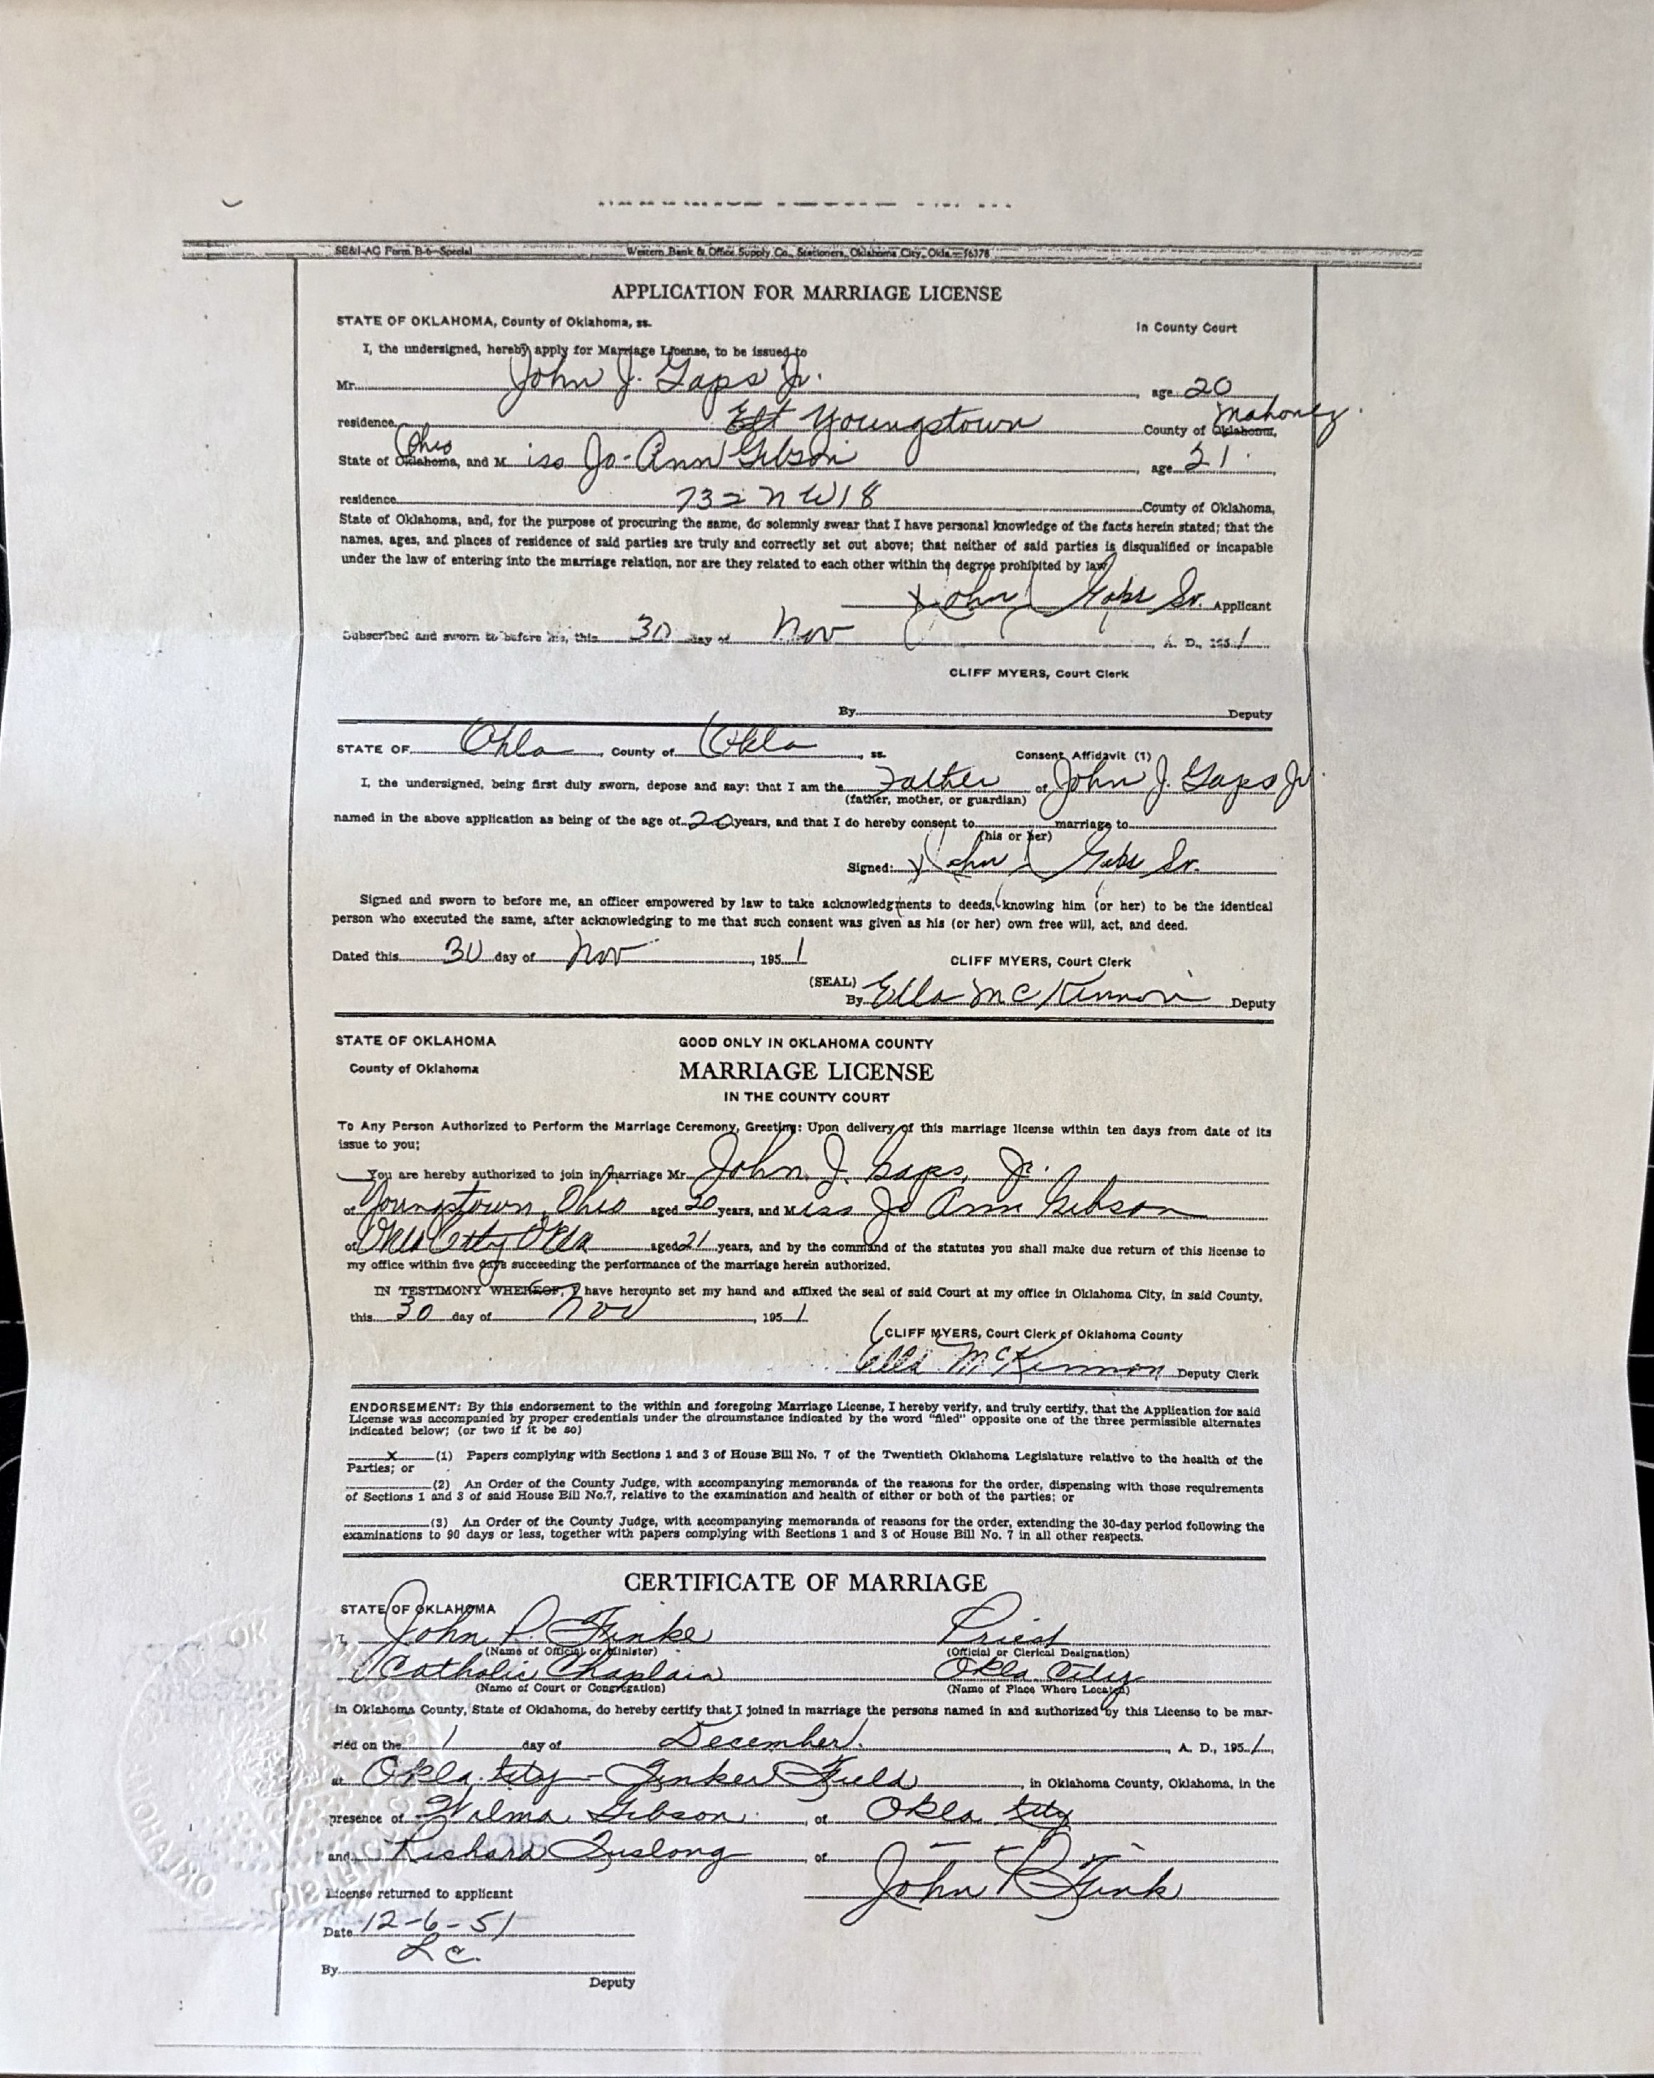 SE&I-AG Form B-6—Special Western Bank & Office Supply Co., Stationers, Oklahoma City, Okla.—16378
APPLICATION FOR MARRIAGE LICENSE
STATE OF OKLAHOMA, County of Oklahoma, ss. In County Court
I, the undersigned, hereby apply for Marriage License, to be issued to
Mr. John J. Gaps Jr. age 20
residence Youngstown County of Oklahoma, Mahoney
State of Oklahoma, Ohio and M iss Jo-Ann Gibson age 21
residence 732 NW 18 County of Oklahoma,
State of Oklahoma, and, for the purpose of procuring the same, do solemnly swear that I have personal knowledge of the facts herein stated; that the
names, ages, and places of residence of said parties are truly and correctly set out above; that neither of said parties is disqualified or incapable
under the law of entering into the marriage relation, nor are they related to each other within the degree prohibited by law.
x John J Gaps Sr. Applicant
Subscribed and sworn to before me, this 30 day of Nov A. D., 1951
CLIFF MYERS, Court Clerk
By Deputy
STATE OF Okla, County of Okla, ss. Consent Affidavit (1)
I, the undersigned, being first duly sworn, depose and say: that I am the Father of John J. Gaps Jr.
(father, mother, or guardian)
named in the above application as being of the age of 20 years, and that I do hereby consent to marriage to
(his or her)
Signed: x John J Gaps Sr.
Signed and sworn to before me, an officer empowered by law to take acknowledgments to deeds, knowing him (or her) to be the identical
person who executed the same, after acknowledging to me that such consent was given as his (or her) own free will, act, and deed.
Dated this 30 day of Nov, 1951 CLIFF MYERS, Court Clerk
(SEAL)
By Ella McKinnon Deputy
STATE OF OKLAHOMA GOOD ONLY IN OKLAHOMA COUNTY
County of Oklahoma MARRIAGE LICENSE
IN THE COUNTY COURT
To Any Person Authorized to Perform the Marriage Ceremony, Greeting: Upon delivery of this marriage license within ten days from date of its
issue to you;
You are hereby authorized to join in marriage Mr. John J. Gaps, Jr.
of Youngstown, Ohio aged 20 years, and Miss Jo Ann Gibson
of Okla City Okla aged 21 years, and by the command of the statutes you shall make due return of this license to
my office within five days succeeding the performance of the marriage herein authorized.
IN TESTIMONY WHEREOF, I have hereunto set my hand and affixed the seal of said Court at my office in Oklahoma City, in said County,
this 30 day of Nov, 1951
CLIFF MYERS, Court Clerk of Oklahoma County
Ella McKinnon Deputy Clerk
ENDORSEMENT: By this endorsement to the within and foregoing Marriage License, I hereby verify, and truly certify, that the Application for said
License was accompanied by proper credentials under the circumstance indicated by the word "filed" opposite one of the three permissible alternates
indicated below; (or two if it be so)
x (1) Papers complying with Sections 1 and 3 of House Bill No. 7 of the Twentieth Oklahoma Legislature relative to the health of the
Parties; or
(2) An Order of the County Judge, with accompanying memoranda of the reasons for the order, dispensing with those requirements
of Sections 1 and 3 of said House Bill No.7, relative to the examination and health of either or both of the parties; or
(3) An Order of the County Judge, with accompanying memoranda of reasons for the order, extending the 30-day period following the
examinations to 90 days or less, together with papers complying with Sections 1 and 3 of House Bill No. 7 in all other respects.
CERTIFICATE OF MARRIAGE
STATE OF OKLAHOMA
I, John P. Finke Priest
(Name of Official or Minister) (Official or Clerical Designation)
Catholic Chaplain Okla City
(Name of Court or Congregation) (Name of Place Where Located)
in Oklahoma County, State of Oklahoma, do hereby certify that I joined in marriage the persons named in and authorized by this License to be mar-
ried on the 1 day of December, A. D., 1951,
at Okla. City - Tinker Field, in Oklahoma County, Oklahoma, in the
presence of Wilma Gibson, of Okla City
and Richard, of
John P Fink
License returned to applicant
Date 12-6-51
L C.
By
Deputy